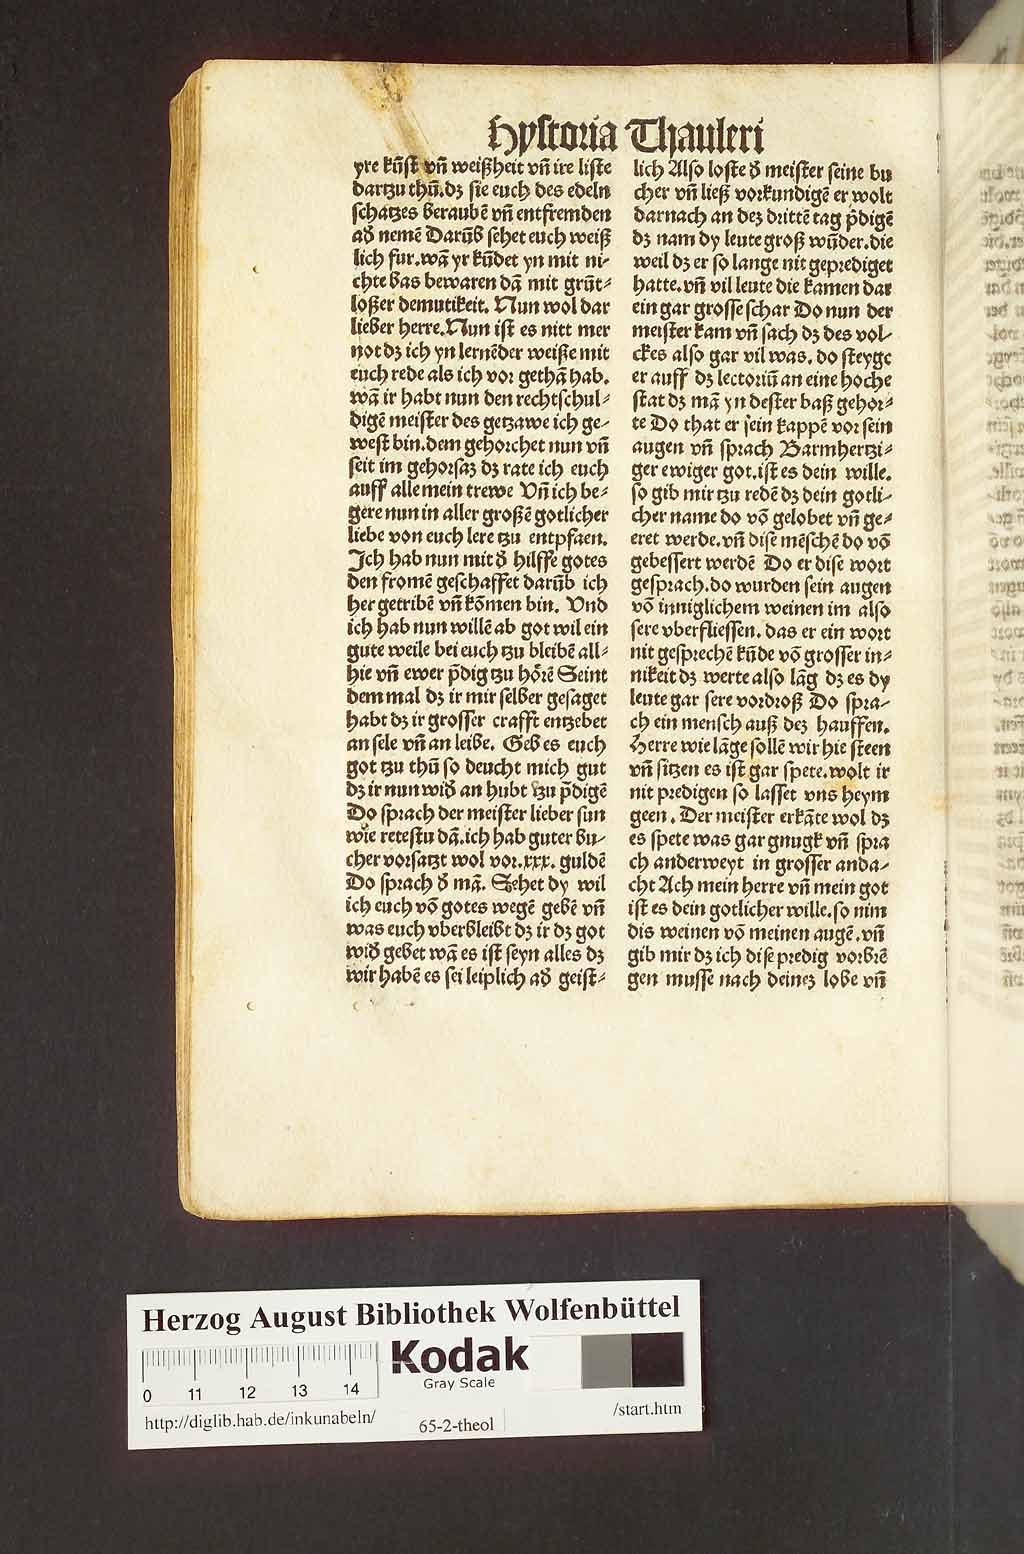 Hystoria Thauleri
yre kūst vn̄ weißheit vn̄ ire liste
dartzu thū.dꝫ sie euch des edeln
schatzes beraubē vn̄ entfremden
ad̕ nemē Darūb sehet euch weiß
lich fur.wā yr kūdet yn mit ni-
chte bas bewaren dā mit grūt-
loßer demutikeit. Nun wol dar
lieber herre.Nun ist es nitt mer
not dꝫ ich yn lernēder weiße mit
euch rede als ich vor gethā hab.
wā ir habt nun den rechtschul-
digē meister des getzawe ich ge-
west bin.dem gehorchet nun vn̄
seit im gehorsaꝫ dꝫ rate ich euch
auff alle mein trewe Vn̄ ich be-
gere nun in aller großē gotlicher
liebe von euch lere tzu entpfaen.
Ich hab nun mit d̕ hilffe gotes
den fromē geschaffet darūb ich
her getribē vn̄ kōmen bin. Vnd
ich hab nun willē ab got wil ein
gute weile bei euch tzu bleibē all-
hie vn̄ ewer p̄dig tzu hörē Seint
dem mal dꝫ ir mir selber gesaget
habt dꝫ ir grosser crafft entzebet
an sele vn̄ an leibe. Geb es euch
got tzu thū so deucht mich gut
dꝫ ir nun wid̕ an hubt tzu p̄digē
Do sprach der meister lieber sun
wie retestu dā.ich hab guter bu-
cher vorsatzt wol vor.xxx. guldē
Do sprach d̕ mā. Sehet dy wil
ich euch vō gotes wegē gebē vn̄
was euch vberbleibt dꝫ ir dꝫ got
wid̕ gebet wā es ist seyn alles dꝫ
wir habē es sei leiplich ad̕ geist-
lich Also loste d̕ meister seine bu
cher vn̄ ließ vorkundigē er wolt
darnach an deꝫ drittē tag p̄digē
dꝫ nam dy leute groß wūder.die
weil dꝫ er so lange nit geprediget
hatte.vn̄ vil leute die kamen dar
ein gar grosse schar Do nun der
meister kam vn̄ sach dꝫ des vol-
ckes also gar vil was. do steyge
er auff dꝫ lectoriū an eine hoche
stat dꝫ mā yn dester baß gehor-
te Do that er sein kappē vor sein
augen vn̄ sprach Barmhertzi-
ger ewiger got.ist es dein wille.
so gib mir tzu redē dꝫ dein gotli-
cher name do vō gelobet vn̄ ge-
eret werde.vn̄ dise mēschē do vō
gebessert werdē Do er dise wort
gesprach.do wurden sein augen
vō inniglichem weinen im also
sere vberfliessen.das er ein wort
nit gesprechē kūde vō grosser in-
nikeit dꝫ werte also lāg dꝫ es dy
leute gar sere vordroß Do spra-
ch ein mensch auß deꝫ hauffen.
Herre wie lāge sollē wir hie steen
vn̄ sitzen es ist gar spete.wolt ir
nit predigen so lasset vns heym
geen. Der meister erkāte wol dꝫ
es spete was gar gnugk vn̄ spra
ch anderweyt in grosser anda-
cht Ach mein herre vn̄ mein got
ist es dein gotlicher wille.so nim
dis weinen vō meinen augē.vn̄
gib mir dꝫ ich dise predig vorbrē
gen musse nach deineꝫ lobe vn̄
Herzog August Bibliothek Wolfenbüttel
Kodak
Gray Scale
0 11 12 13 14
http://diglib.hab.de/inkunabeln/
65-2-theol
/start.htm